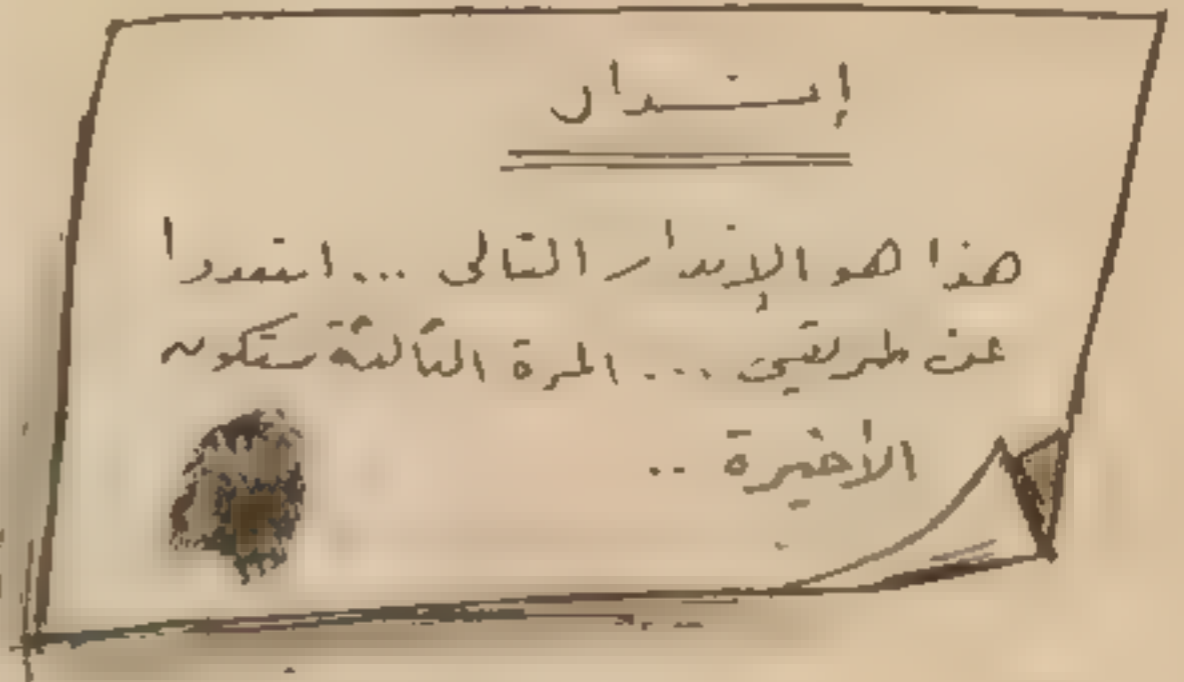 إنذار
هذا هو الإنذار الثانى ... ابتعدوا
عن طريقى ... المرة الثالثة ستكون
الأخيرة ..